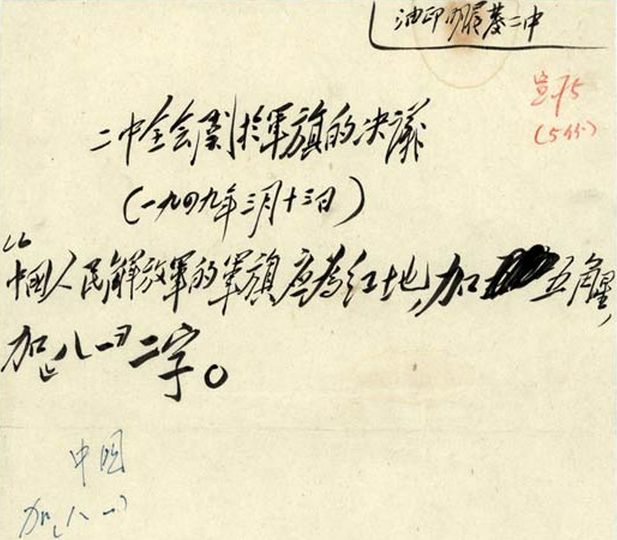 油印 二中
(5份)
二中全会关于軍旗的决議
(一九四九年三月十三日)
“中國人民解放軍的軍旗应為红地,加 五角星,
加“八一”二字。
中国
加“八一”